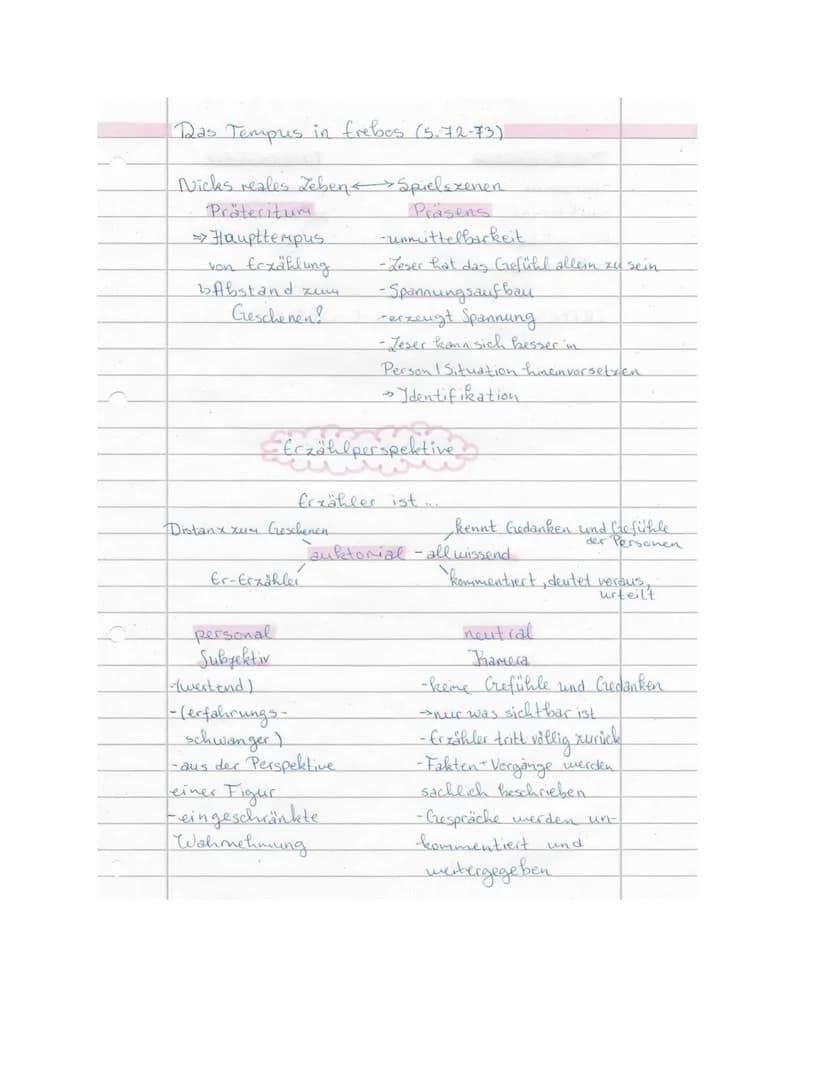 Das Tempus in Erebos (S.72-73)
Nicks reales Leben ↔ Spielszenen
Präteritum
⇒ Haupttempus
von Erzählung
↳ Abstand zum
Geschenen!
Präsens
- unmittelbarkeit
- Leser hat das Gefühl allein zu sein
- Spannungsaufbau
- erzeugt Spannung
- Leser kann sich besser in
Person / Situation hineinvorsetzen
→ Identifikation
Erzählperspektive
Erzähler ist ...
Distanz zum Geschenen
Er-Erzähler
auktorial - allwissend
kennt Gedanken und Gefühle
der Personen
kommentiert, deutet voraus,
urteilt
personal
Subjektiv
- (wertend)
- (erfahrungs-
schwanger)
- aus der Perspektive
einer Figur
- eingeschränkte
Wahrnehmung
neutral
Kamera
- keine Gefühle und Gedanken
→ nur was sichtbar ist
- Erzähler tritt völlig zurück
- Fakten + Vorgänge werden
sachlich beschrieben
- Gespräche werden un-
kommentiert und
weitergegeben